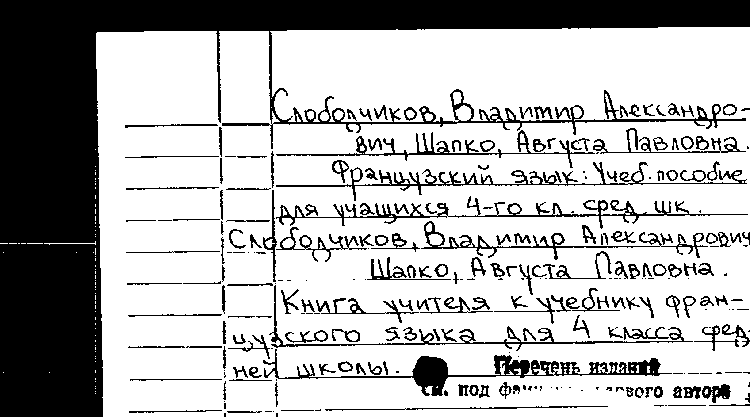 Слободчиков, Владимир Александро-
вич, Шапко, Августа Павловна.
Французский язык: Учеб. пособие
для учащихся 4-го кл. сред. шк.
Слободчиков, Владимир Александрович
Шапко, Августа Павловна.
Книга учителя к учебнику фран-
цузского языка для 4 класса
ней школы. Перечень изданий
см. под первого автора